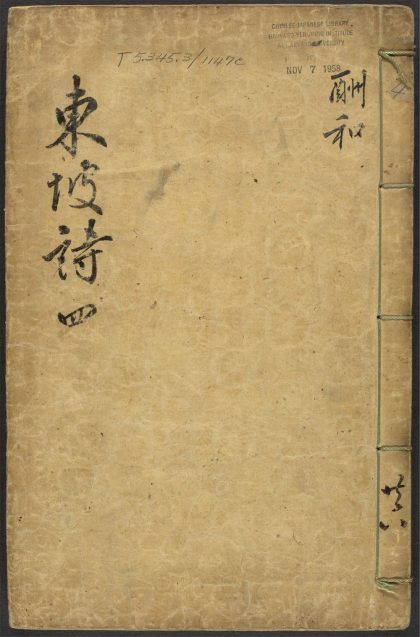 東坡詩四
酬和
T5345.3/1147c
CHINESE JAPANESE LIBRARY
HARVARD YENCHING INSTITUTE
NOV 7 1958
4